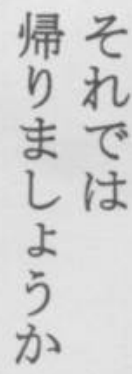 それでは
帰りましょうか